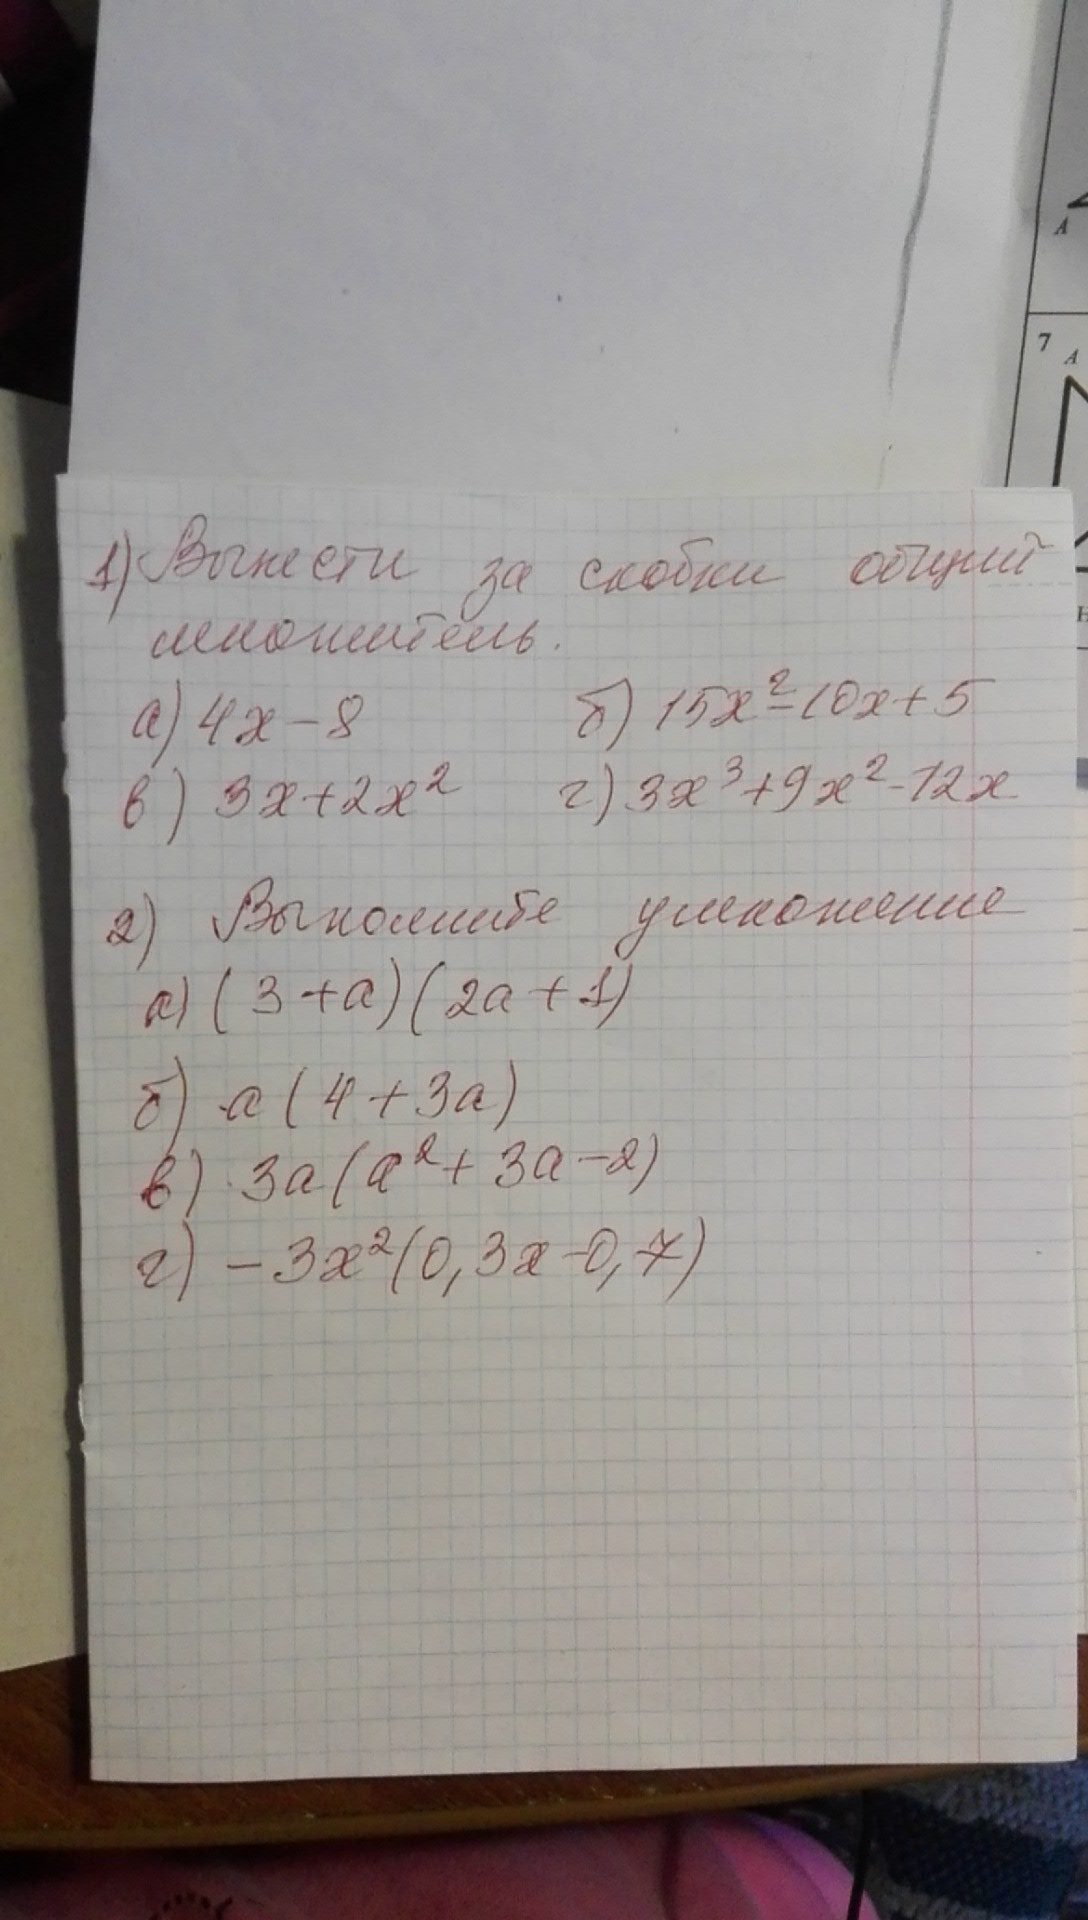 1) Вынести за скобки общий
множитель.
а) 4x - 8 б) 15x² - 10x + 5
в) 3x + 2x² г) 3x³ + 9x² - 12x
2) Выполните умножение
а) (3 + a)(2a + 1)
б) a(4 + 3a)
в) 3a(a² + 3a - 2)
г) - 3x²(0,3x - 0,7)
A
7
A
Н